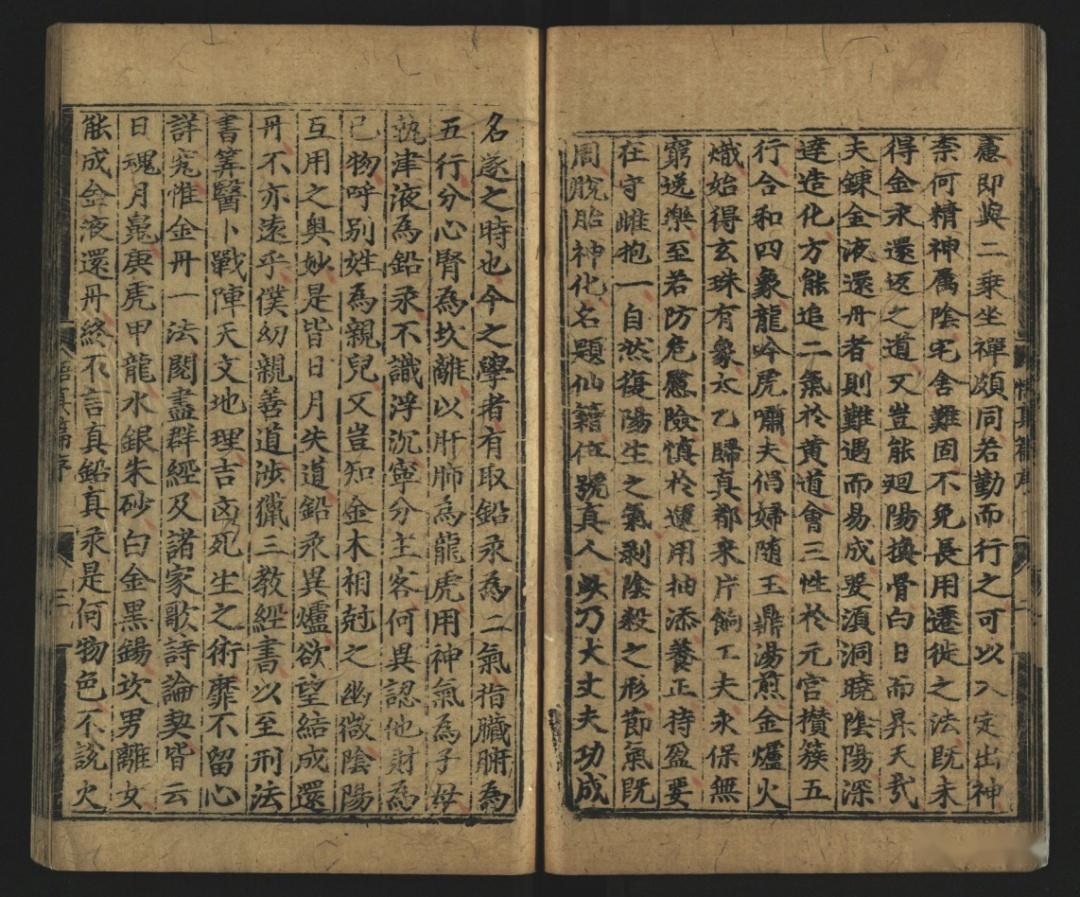 慮即與二乘坐禪頗同若勤而行之可以入定出神
柰何精神屬陰宅舍難固不免長用遷徙之法既未
得金汞還返之道又豈能廻陽換骨白日而昇天㢤
夫鍊金液還丹者則難遇而易成要湏洞曉陰陽深
逹造化方能追二氣於黄道㑹三性於元宫攅簇五
行合和四象龍吟虎嘯夫倡婦随玉鼎湯煎金爐火
熾始得玄珠有象太乙歸真都來片餉工夫永保無
窮逸樂至若防危慮險慎於運用抽添養正持盈要
在守雌抱一自然復陽生之氣剥陰殺之形節氣既
周脫胎神化名題仙籍位號真人此乃大丈夫功成
名遂之時也今之學者有取鉛汞為二氣指臟腑為
五行分心腎為坎離以肝肺為龍虎用神氣為子母
執津液為鉛汞不識浮沉寧分主客何異認他財為
已物呼别姓為親兒又豈知金木相尅之幽微陰陽
互用之奥妙是皆日月失道鉛汞異爐欲望結成還
丹不亦遠乎僕幼親善道涉獵三教經書以至刑法
書筭醫卜戰陣天文地理吉㐫死生之術靡不留心
詳究惟金丹一法閱盡群經及諸家歌詩論契皆云
日魂月䰟庚虎甲龍水銀朱砂白金黑錫坎男離女
能成金液還丹終不言真鉛真汞是何物色不說火
悟真篇序
三